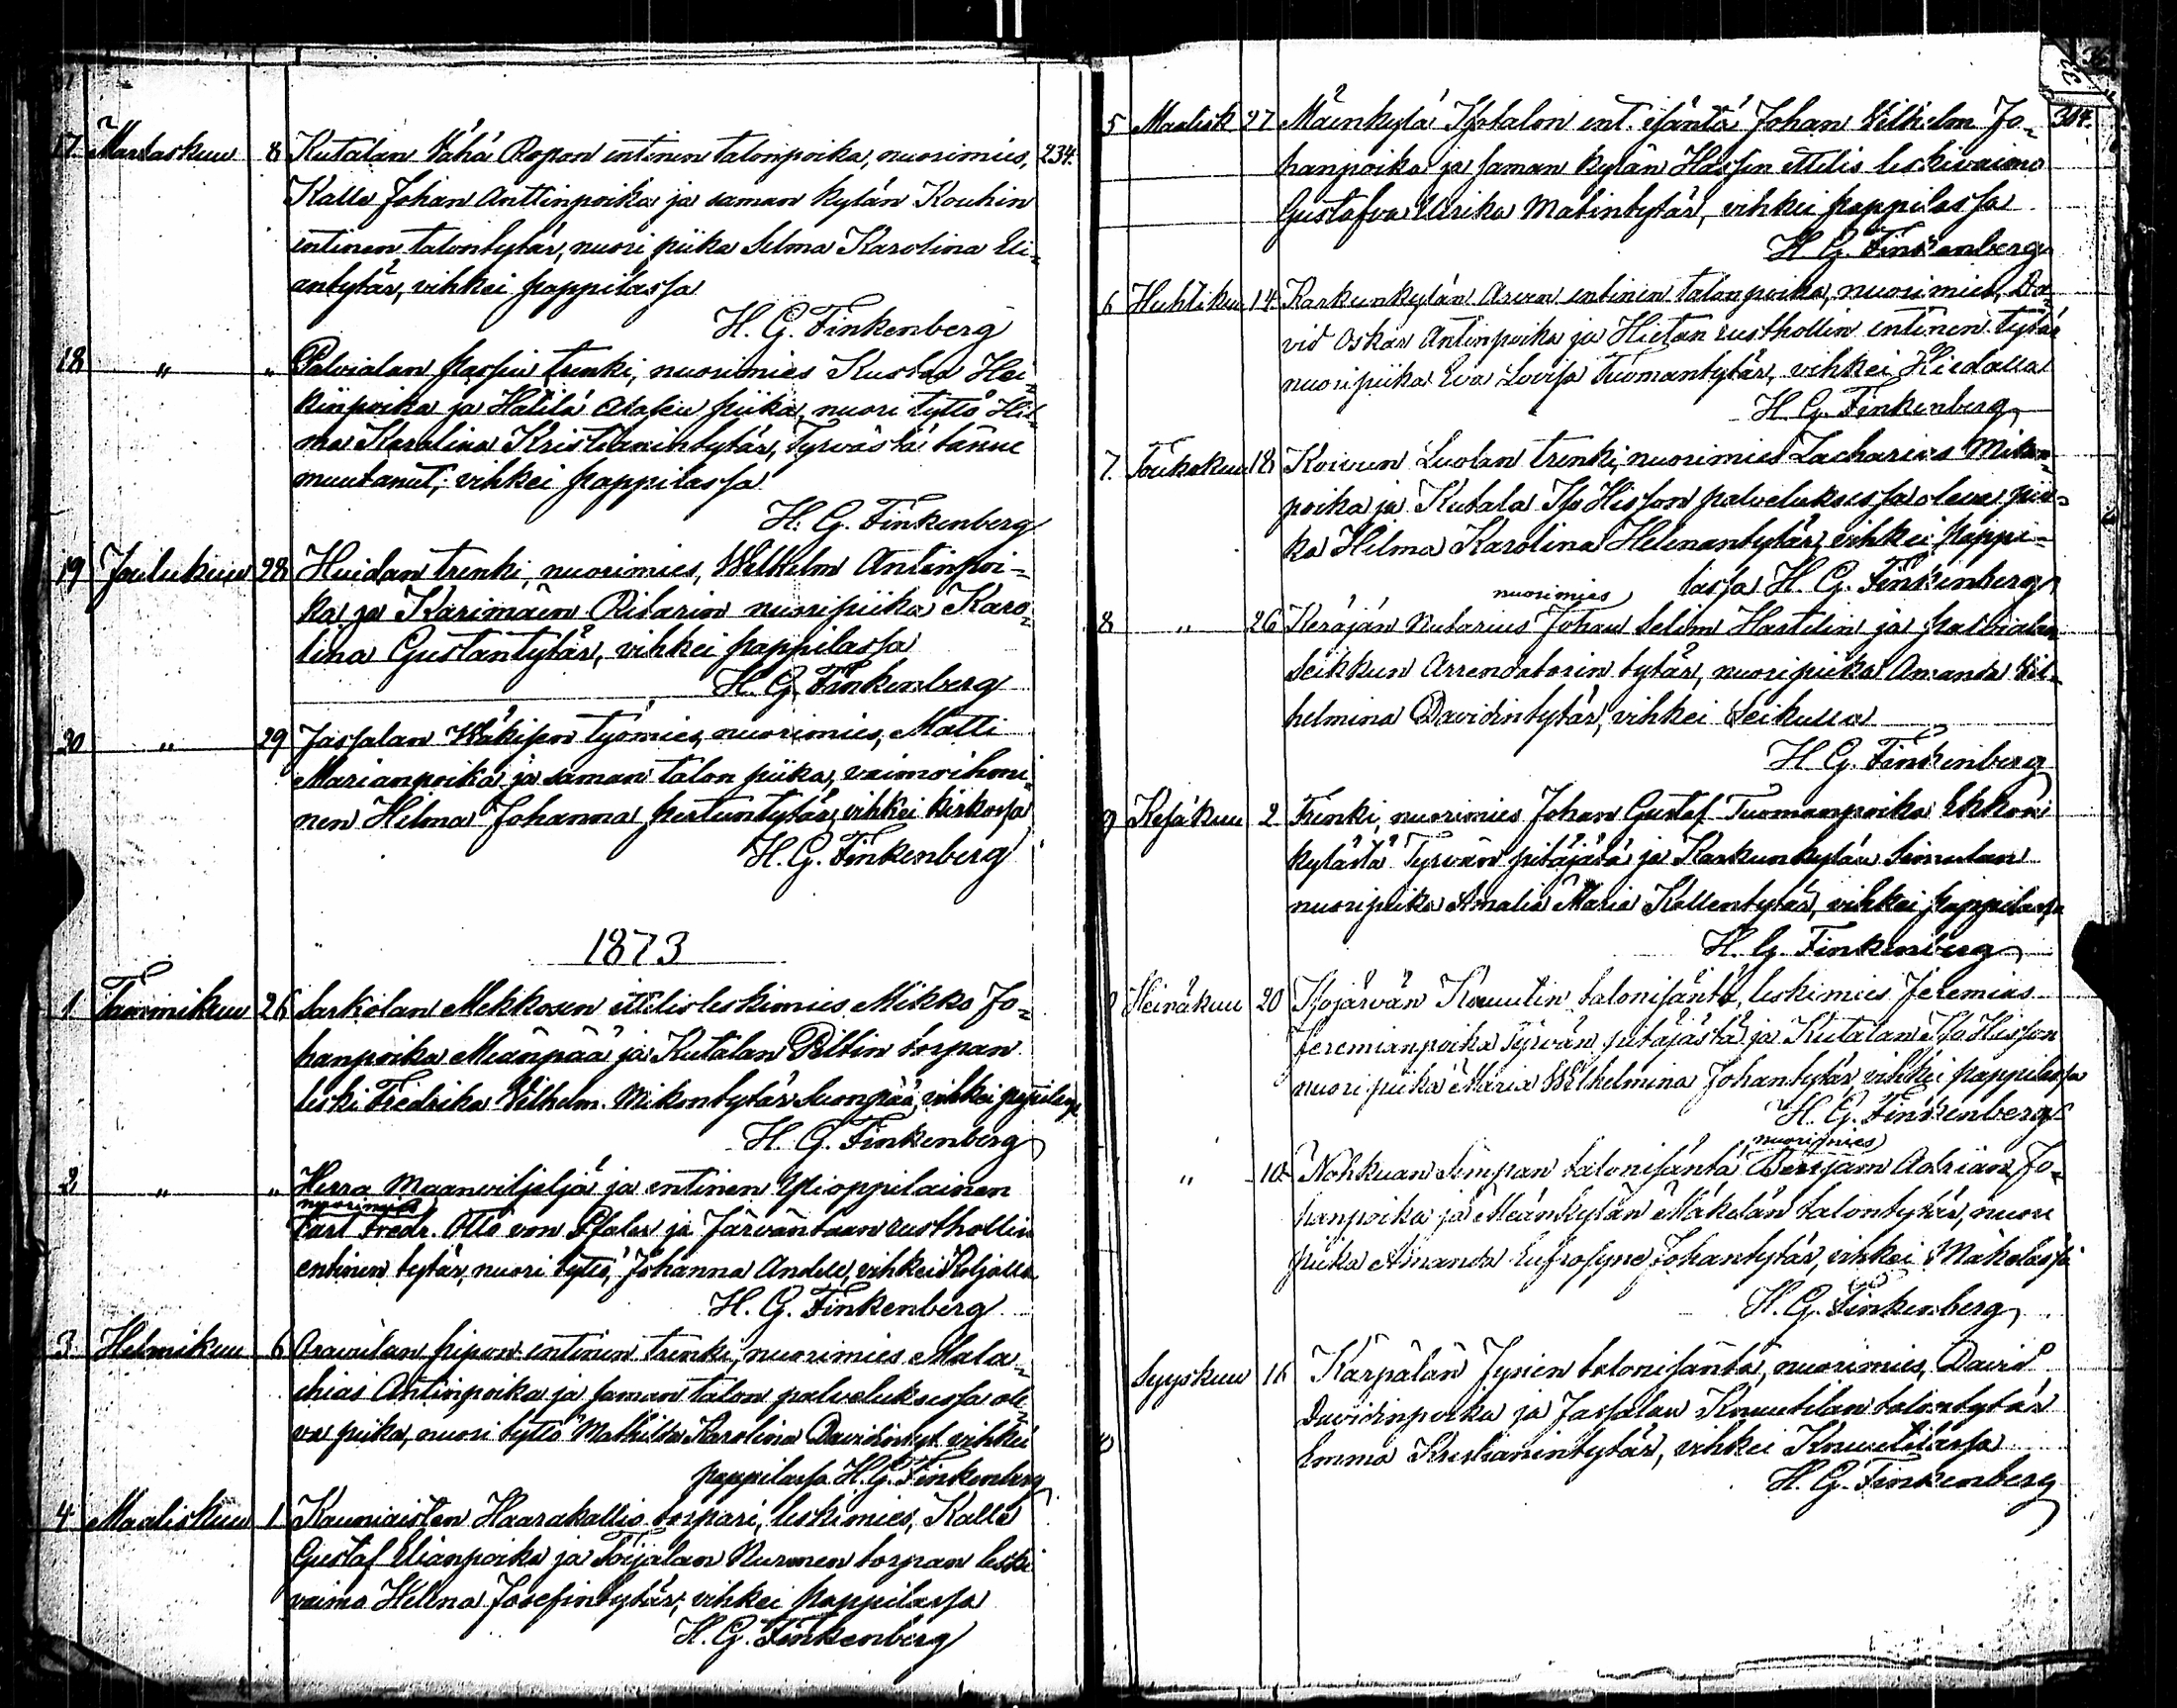 17. Marraskuu 8 Kutalan Vähä Ropan entinen talonpoika, nuorimies, 234.
Kalle Johan Anttinpoika ja saman kylän Kouhin
entinen talontytär, nuori piika Selma Karolina Eli-
antytär, vihkei pappilassa
H. G. Finkenberg
18 " " Palvialan trenki, nuorimies Kustaa Hei-
kinpoika ja Hatilá piika, nuori tyttö Hil-
ma Karolina Kristianintytár, TyrväsTä tänne
muutanut; vihkei pappilassa
H. G. Finkenberg
19 Joulukuu 28 Huidan trenki, nuorimies, Wilhelm Antinpoi-
ka ja Karimäen Ritarin nuoripiika Karo-
lina Gustantytár, vihkei pappilassa
H. G. Finkenberg
20 " 29 Jassalan työmies, nuorimies, Matti
Marianpoika ja saman talon piika, vaimoihmi-
nen Helma Johanna pertuntytár, vihkei kirkossa
H. G. Finkenberg
1873
1 Tammikuu 26 Sarkolan Mekkosen itellisleskimies Mikko Jo-
hanpoika Meänpää ja Kutalan Piltin torpan
leski Fredrika Vilhelm. Mikontytár vihkei
H. G. Finkenberg
2 " " Herra Maanviljeljä ja entinen Ylioppilainen
nuorimies
Carl Fredr. Otto von Pfaler ja Järventaan rusthollin
entinen tytár, nuori tyttö, Johanna vihkei
H. G. Finkenberg
3. Helmikuu 6 entinen trenki, nuorimies Mala-
chias Antinpoika ja saman talon palveluksessa ole-
va piika, nuori tyttö Mathilda Karolina Davidintyt. vihkei
pappilassa H. G. Finkenberg
4. Maaliskuu 1 Kauniaisten Haarakallio torpari, leskimies, Kalle
Gustaf Elianpoika ja Toijalan Nurmen torpan leski
vaimo Helena Josefintytár; vihkei pappilassa
H. G. Finkenberg
5 Maalisk 27 Mäenkylä Isotalon ent. isäntä Johan Vilhelm Jo- 304.
hanpoika ja saman kylän Hassin ittelis leskivaimo
Gustafva Ulrika Matintytár, vihkei pappilassa
H. G. Finkenberg
6 Huhtikuu 14 Karkunkylán entinen talonpoika, nuorimies, Da-
vid Oskar Antinpoika ja Hietan rusthollin entinen tytár
nuoripiika Eva Lovisa Tuomantytár, vihkei Hiedalla
H. G. Finkenberg
7. Toukokuu 18 Koivun Luolan trenki, nuorimies Zacharias Mikon-
poika ja Kutala Iso Hisson palveluksessa oleva pii-
ka Hilma Karolina Helenantytár, vihkei pappi-
lassa H. G. Finkenberg
nuorimies
8 " 26 Käräján Notarius Johan Selim Hartelin ja palvialan
Seikkun Arrendatorin tytár, nuoripiika Amanda Vil-
helmina Davidintytár, vihkei Seikulla
H. G. Finkenberg
9 Kesäkuu 2 Trenki, nuorimies Johan Gustaf Tuomanpoika
kylästä Tyrvän pitäjästä ja Karkunkylán Simulan
nuoripiika Amalia Maria Kallentytár, vihkei pappilassa
H. G. Finkenberg
Heinäkuu 20 Isojärvän Knuutin talonisäntä, leskimies Jeremias
Jeremianpoika Tyrvän pitäjästä ja Kutalan Iso Hisson
nuori piika Maria Wilhelmina Johantytár, vihkei pappilassa
H. G. Finkenberg
nuorimies
" 10 Nohkuan Simpan talonisäntä, Benjam Adrian Jo-
hanpoika ja Meänkylän Mäkelän talontytár, nuori
piika Amanda Eufrosyne Johantytár, vihkei Mäkelässä
H. G. Finkenberg
Syyskuu 16 Kärpälän Jysien talonisäntä, nuorimies, David
Davidinpoika ja Jassalan Knuutilan talontytár
Emma Kristianintytár, vihkei Knuutilassa
H. G. Finkenberg